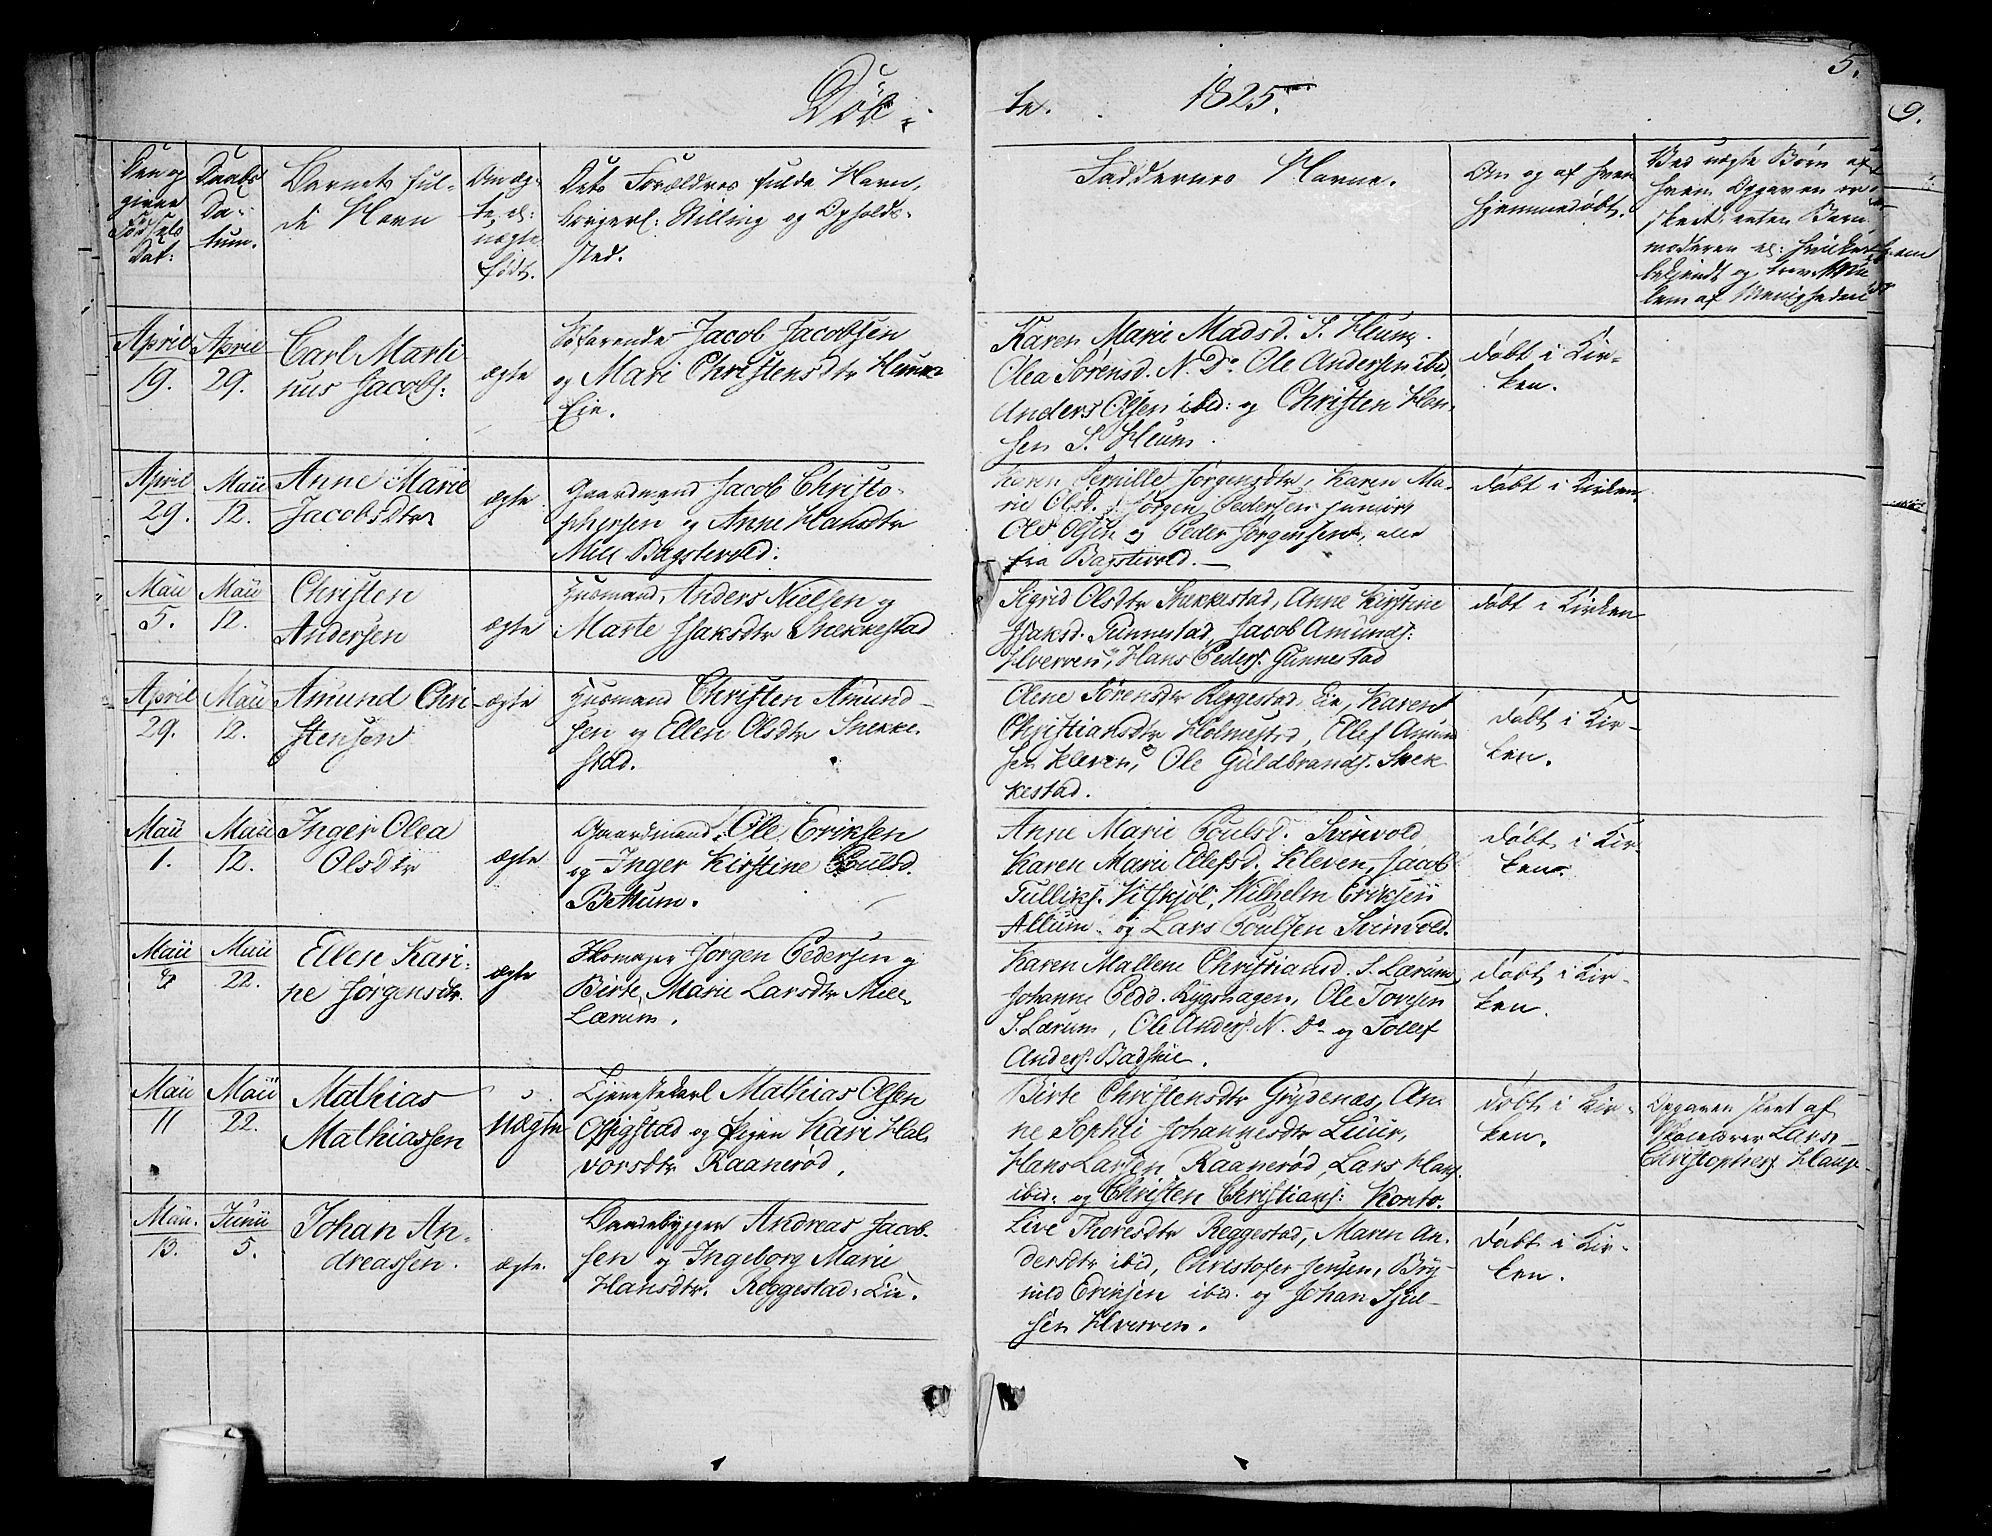 Døb-
te. 1825.
5.
9.
Den op
givne
Fødsels
Dat:
Daabs
Da-
tum.
Barnets ful-
de Navn
Om æg-
te, el:
uægte
født.
Dets Forældres fulde Navn,
borgerl: Stilling og Opholds-
sted.
Faddernes Navne.
Om og af hvem
hjemmedøbt.
Ved uægte Børn af
hvem Opgaven er
skeet, enten Barn
moderen el: hvilket
bekjendt og trov
lem af Menigheden
April
19.
April
29.
Carl Marti
nus Jacobs:
ægte
Søfarende Jacob Jacobsen
og Mari Christensdtr Heum
Eie.
Karen Marie Madsd. S. Heum.
Olea Sørensd. N. Do Ole Andersen ibid,
Anders Olsen ibid: og Christen Han-
sen S. Heum.
døbt i Kir-
ken.
April
29.
Maii
12.
Anne Marie
Jacobsdtr
ægte
Gaardmand Jacob Christo-
phersen og Anne Hansdtr
Mell Bagstevold.
Karen Pernille Jørgensdtr, Karen Ma-
rie Olsd. Jørgen Pedersen junior
Ole Olsen og Peder Jørgensen, alle
fra Bagstevold. —
døbt i Kirken
Maii
5.
Maii
12.
Christen
Andersen
ægte
Huusmand, Anders Nielsen og
Marte Isaksdtr Snekkestad
Sigrid Olsdtr Snekkestad, Anne Kirstine
Isaksd. Gunnestad, Jacob Amunds:
Hverven, Hans Peders. Gunnestad
døbt i Kirken
April
29.
Maii
12.
Amund Chri
stensen
ægte
Huusmand Christen Amund-
sen og Ellen Olsdtr Snekke-
stad.
Olene Sørensdtr Reggestad Eie, Karen
Christiansdtr Holmestad, Ellef Amund
sen Kleven, Ole Guldbrands. Snek
kestad.
døbt i Kir-
ken.
Maii
1.
Maii
12.
Inger Olea
Olsdtr
ægte
Gaardmand Ole Eriksen
og Inger Kirstine Poulsd.
Bettum.
Anne Marie Poulsd. Svinvold
Karen Marie Ellefsd. Kleven, Jacob
Tulliks. Vitskjøl, Wilhelm Eriksen
Allum og Lars Poulsen Svinvold.
døbt i Kir-
ken.
Maii
Maii
22.
Ellen Kari-
ne Jørgensdtr.
ægte
Skomager Jørgen Pedersen og
Birte Marie Larsdtr Mell.
Lærum.
Karen Mallene Christiansd. S. Lærum,
Johanne Pedd. Rygshagen, Ole Toresen
S. Lærum, Ole Anders. N. Do og Tollef
Anders. Badskie.
døbt i Kir-
ken.
Maii
11
Maii
22.
Mathias
Mathiassen
uægte
Tjenestekarl Mathias Olsen
og Pigen Kari Hal
vorsdtr Raanerød.
Birte Christensdtr Grydenæs, An-
ne Sophie Johannesdtr Luur,
Hans Larsen Raanerød, Lars Hans.
ibid. og Christen Christians: Konto.
døbt i Kir-
ken.
Opgaven skeet af
Skoelærer Lars
Christophers. Haug
Maii.
13.
Junii
5.
Johan An-
dreassen.
ægte.
Baadebygger Andreas Jacob-
sen og Ingeborg Marie
Hansdtr. Reggestad. Eie.
Live Thoresdtr Reggestad, Maren An-
dersdtr ibid, Christofer Jensen, Bry-
nild Eriksen ibid. og Johan Sjul-
sen Hverven.
døbt i Kir-
ken.